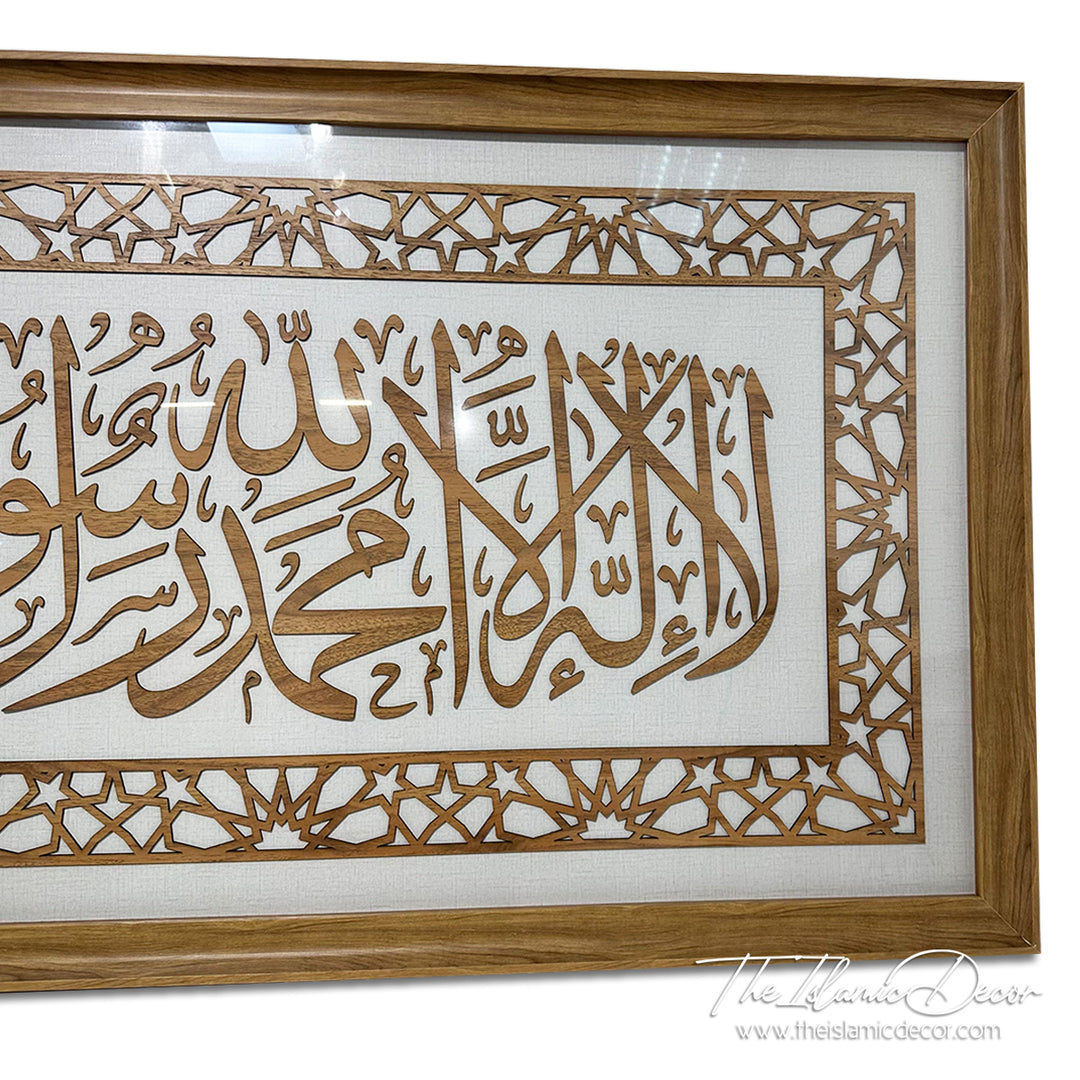 لَا إِلَهَ إِلَّا اللهُ مُحَمَّدٌ رَسُولُ
The Islamic Decor
www.theislamicdecor.com